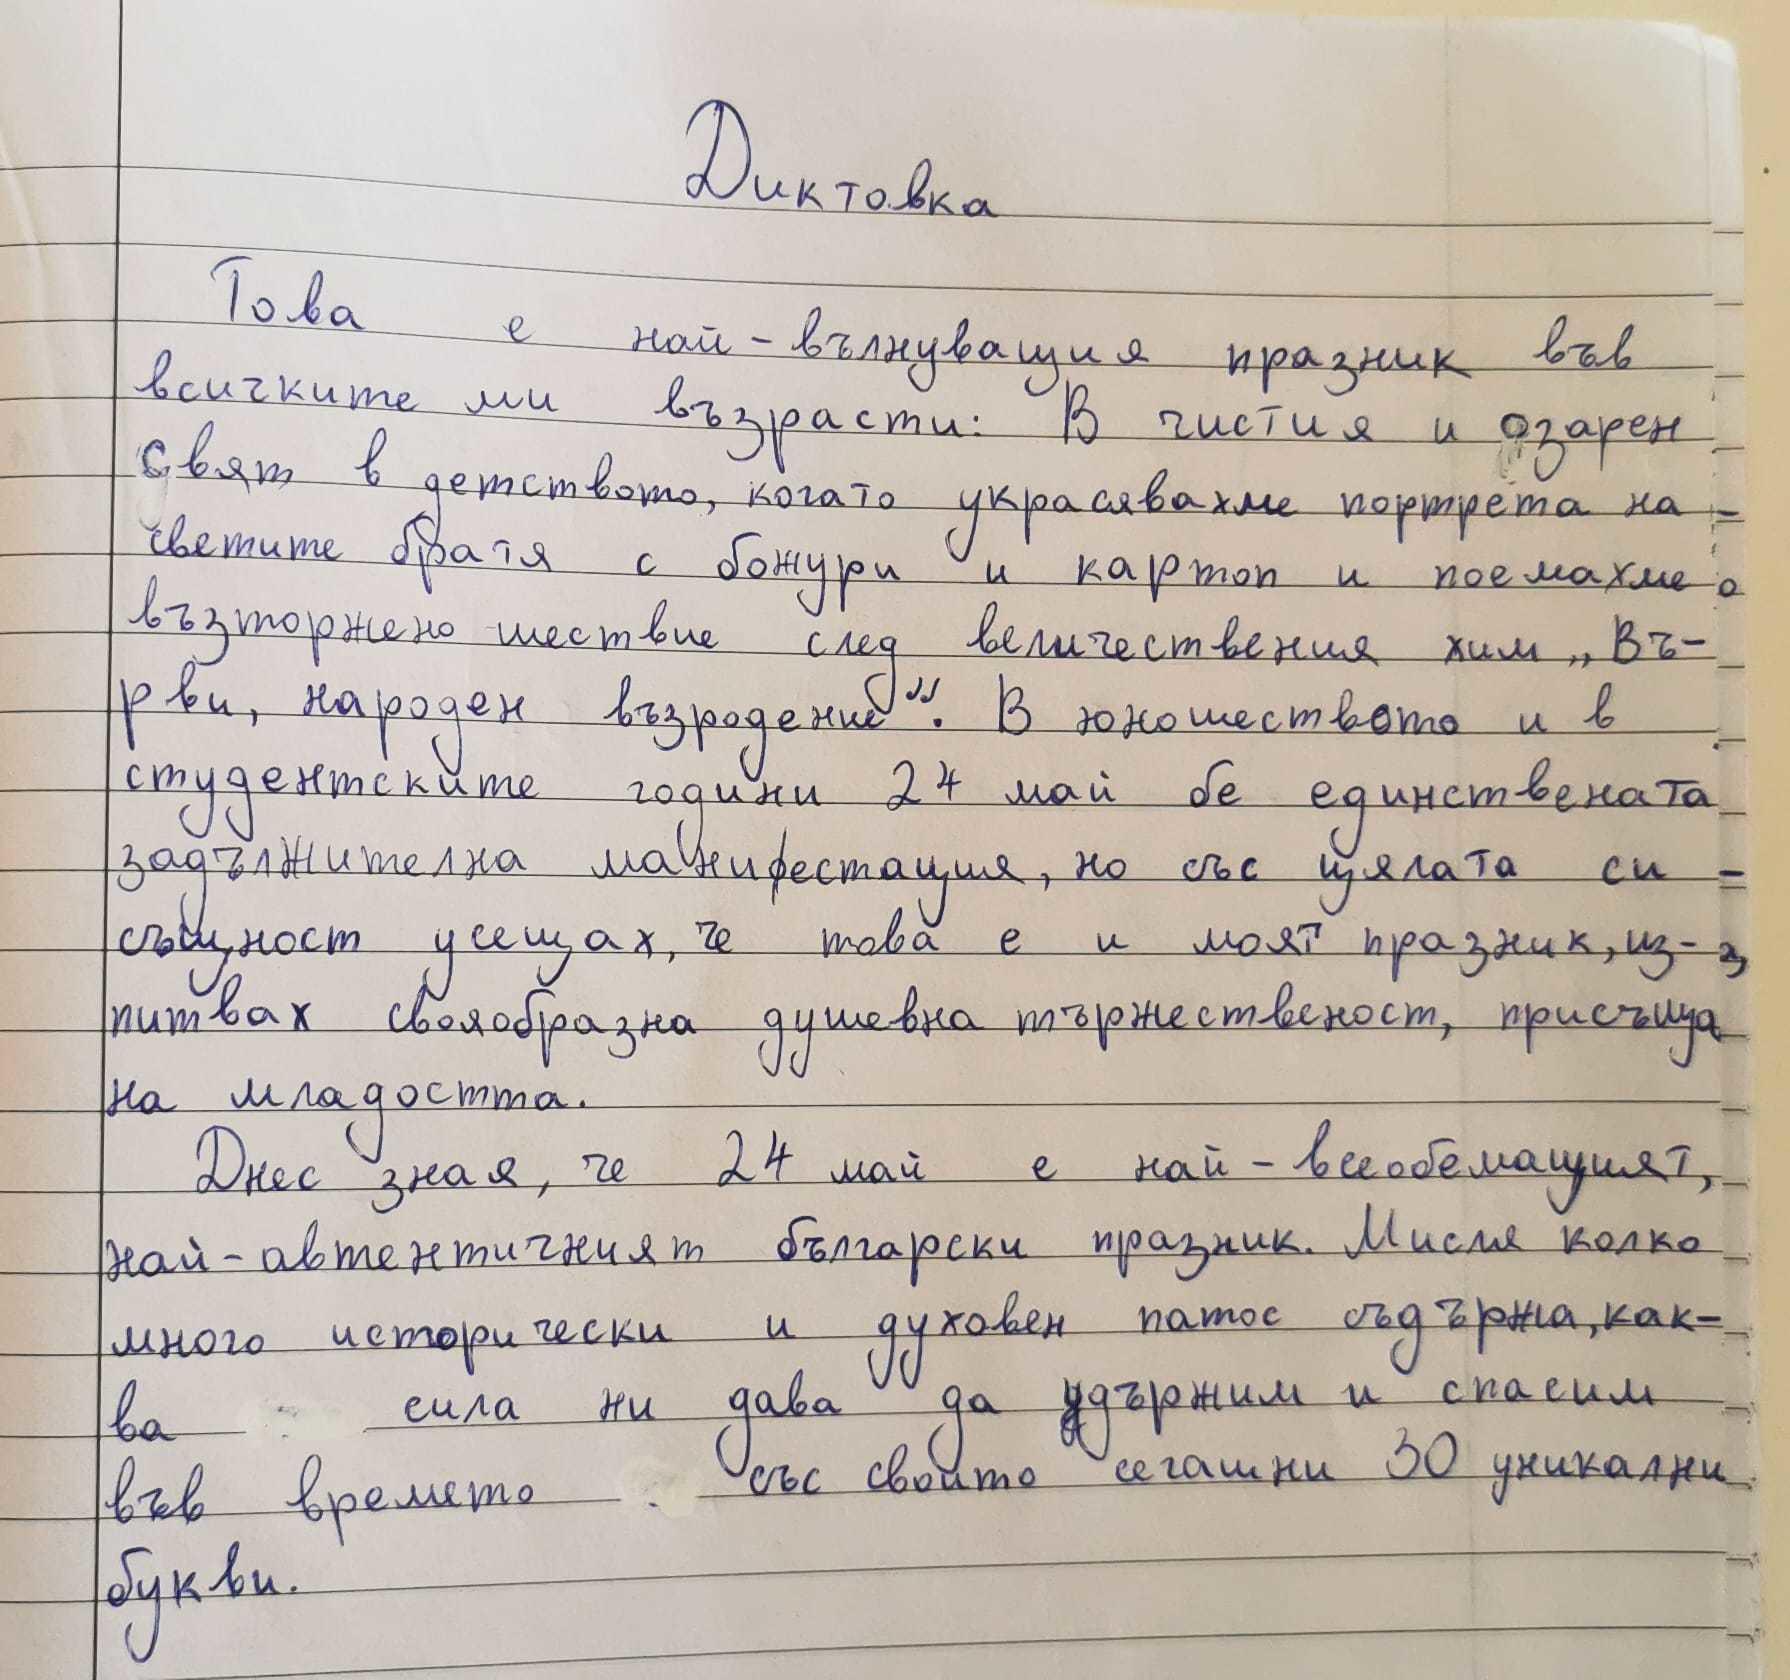 Диктовка
Това е най-вълнуващия празник във
всичките ми възрасти: В чистия и озарен
свят в детството, когато украсявахме портрета на
светите братя с божури и картоп и поемахме
възторжено шествие след величествения хим „Въ-
рви, народен възродение“. В юношеството и в
студентските години 24 май бе единствената
задължителна манифестация, но със цялата си
същност усещах, че това е и моят празник, из-
питвах свояобразна душевна тържественост, присъща
на младостта.
Днес зная, че 24 май е най-всеобемащият,
най-автентичният български празник. Мисля колко
много исторически и духовен патос съдържа, как-
ва сила ни дава да удържим и спасим
във времето със своито сегашни 30 уникални
букви.